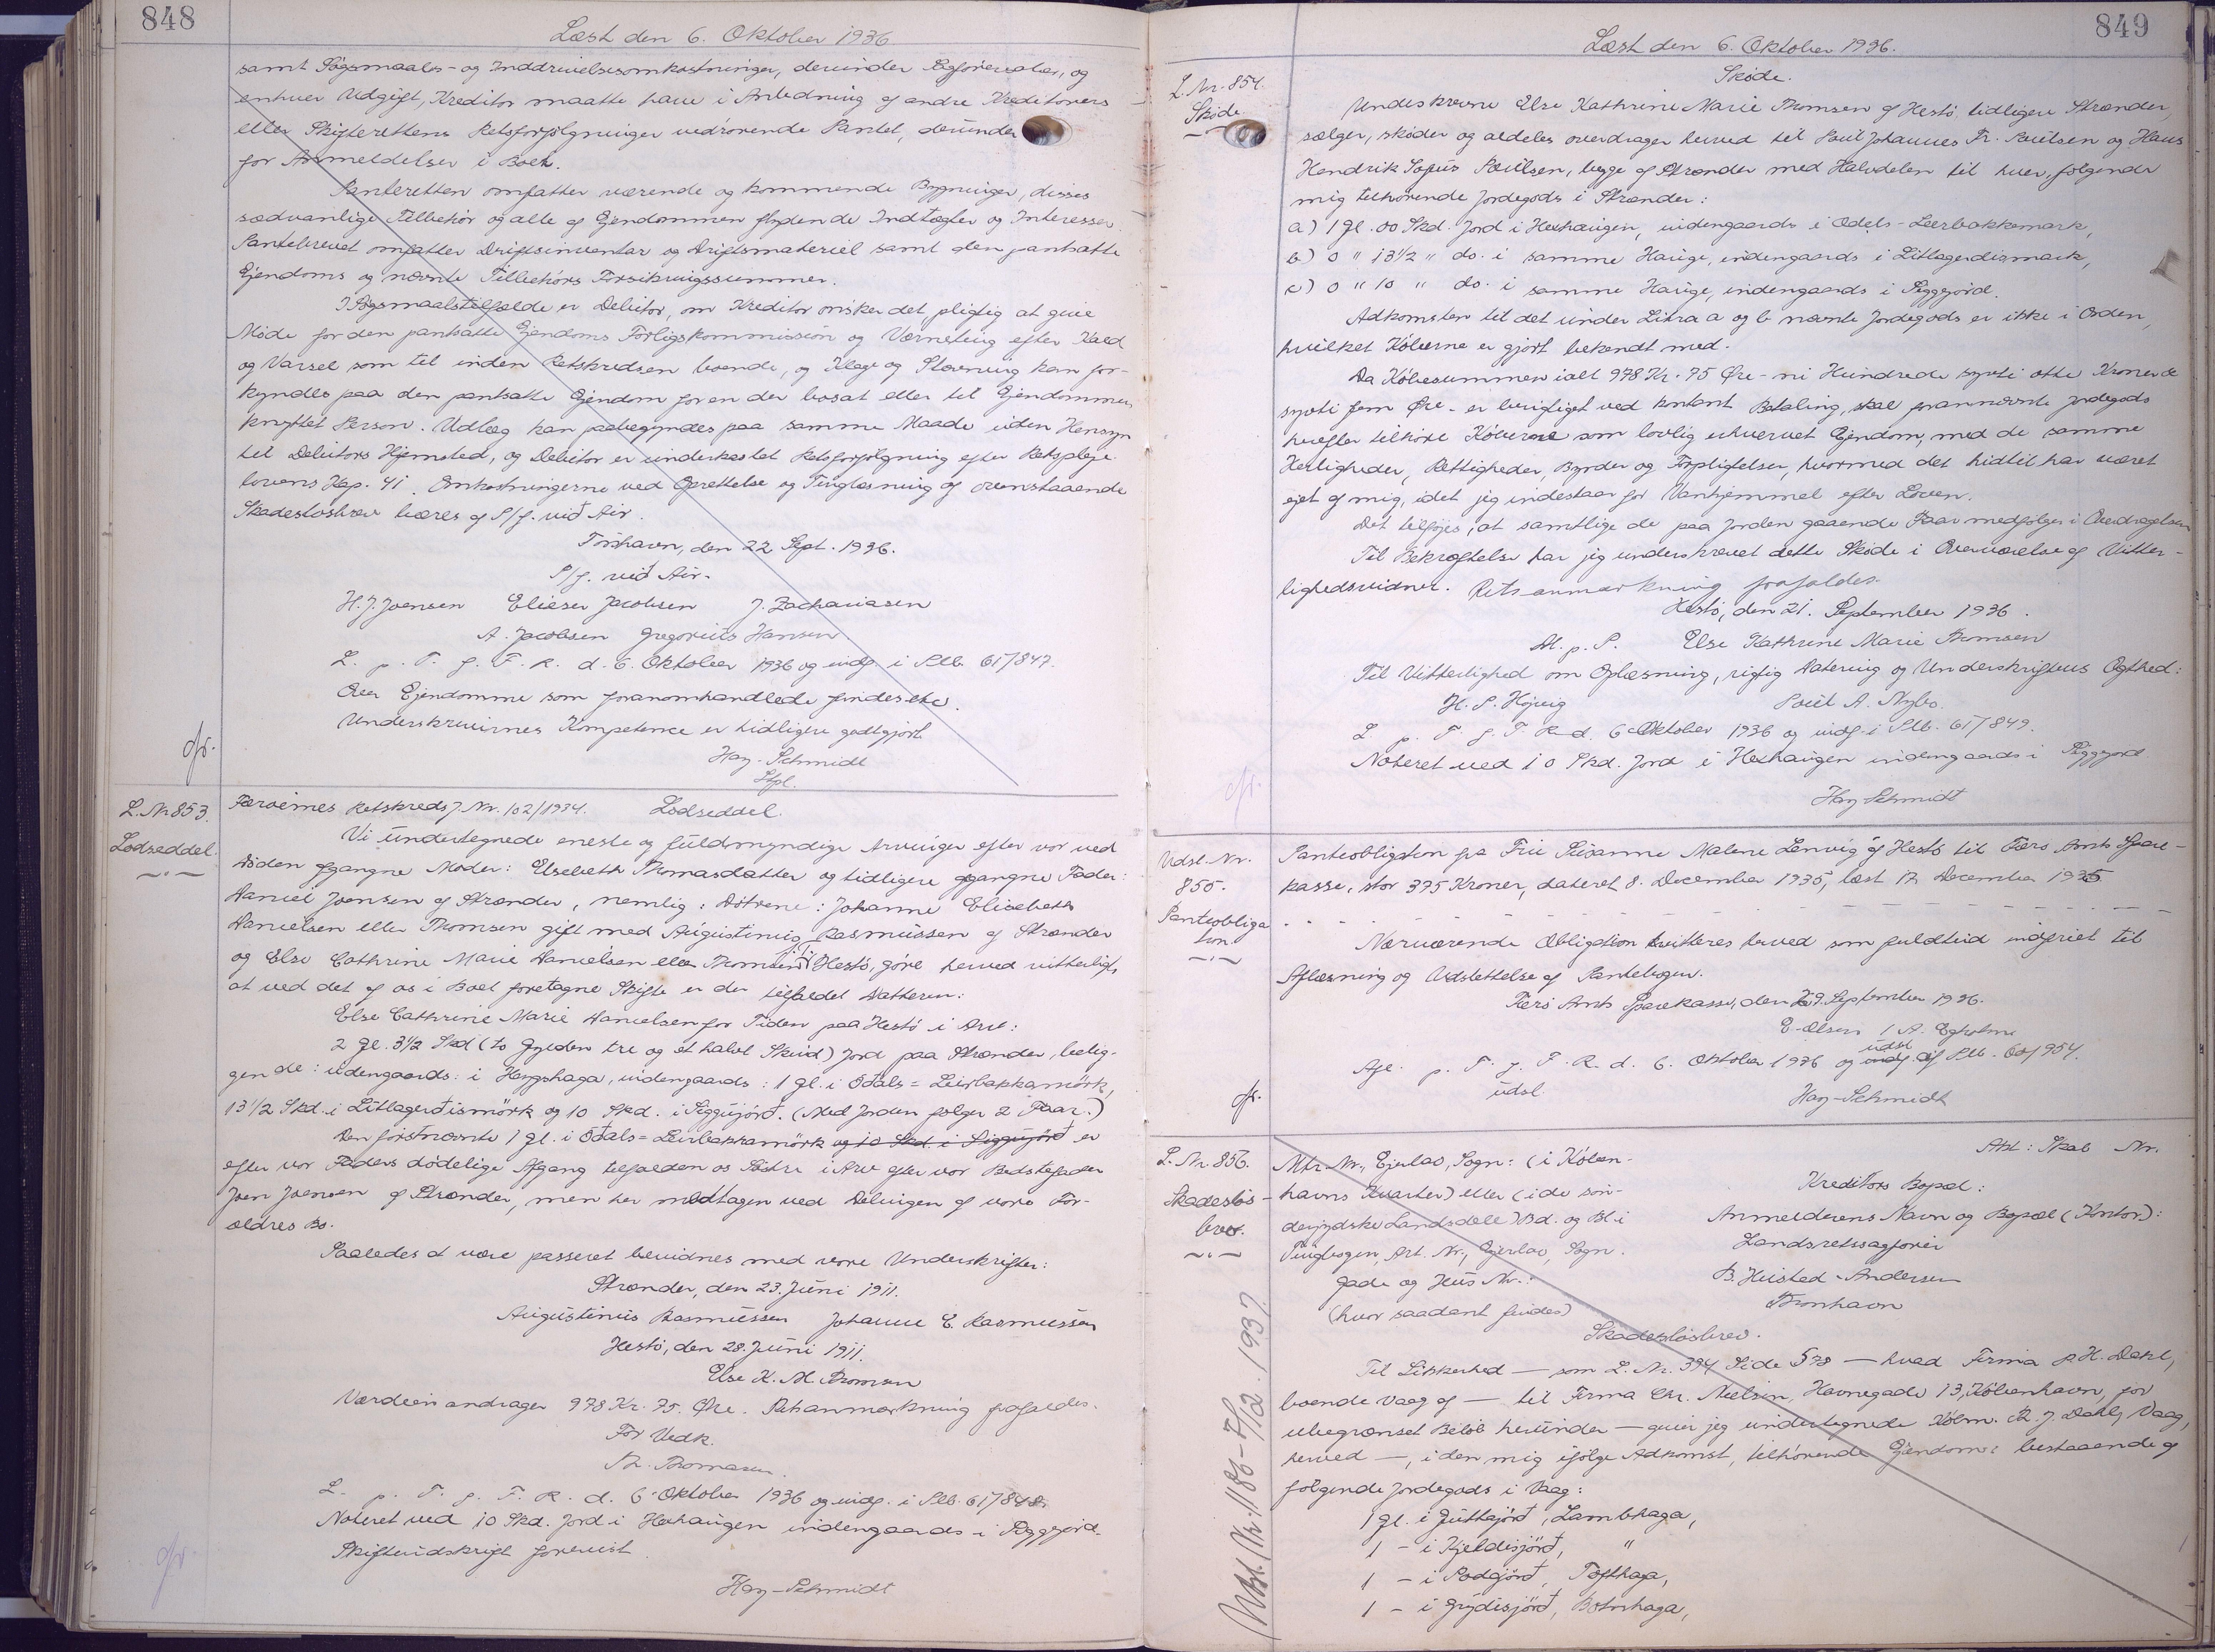 848
Læst den 6. Oktober 1936
samt Søgsmaals- og Inddrivelsesomkostninger, derunder Sagførersalær, og
enhver Udgift, Kreditor maatte have i Anledning af andre Kreditorers
eller Skifterettens Retsforfølgninger vedrørende Pantet, derunder
for Anmeldelser i Boet.
Panteretten omfatter værende og kommende Bygninger, disses
sædvanlige Tilbehør og alle af Ejendommen flydende Indtægter og Interesser.
Pantebrevet omfatter Driftsinventar og Driftsmateriel samt den pantsatte
Ejendoms og nævnte Tilbehørs Forsikringssummer.
I Søgsmaalstilfælde er Debitor, om Kreditor ønsker det, pligtig at give
Møde for den pantsatte Ejendoms Forligskommission og Værneting efter Kald
og Varsel som til inden Retskredsen boende, og Klage og Stævning kan for-
kyndes paa den pantsatte Ejendom for en der bosat eller til Ejendommen
knyttet Person. Udlæg kan paabegyndes paa samme Maade uden Hensyn
til Debitors Hjemsted, og Debitor er underkastet Retsforfølgning efter Retspleje-
lovens Kap. 41. Omkostningerne ved Oprettelse og Tinglæsning af ovenstaaende
Skadesløsbrev bæres af P/f. við Air.
Tórshavn, den 22 Sept. 1936.
P/f. við Air.
H. J. Joensen Elieser Jacobsen J. Zachariasen
A. Jacobsen Gregorius Hansen
L. p. T. f. F. R. d. 6. Oktober 1936 og indf. i S.Pb. 61/847.
Over Ejendomme som foranomhandlede findes etc.
Underskrivernes Kompetence er tidligere godtgjort
Hay-Schmidt
Stpl.
cfr.
L. Nr. 853.
Lodseddel.
Færøernes Retskreds J. Nr. 102/1934. Lodseddel.
Vi undertegnede eneste og fuldmyndige Arvinger efter vor ved
Døden afgangne Moder: Elsebeth Thomasdatter og tidligere afgangne Fader:
Daniel Joensen af Strænder, nemlig: Døtrene: Johanne Elisabeth
Danielsen eller Thomsen gift med Augustinus Rasmussen af Strænder
og Else Cathrine Marie Danielsen eller Thomsen Hestø, göre herved vitterligt,
at ved det af os i Boet foretagne Skifte er der tilfaldet Datteren:
Else Cathrine Marie Danielsen for Tiden paa Hestö i Arv:
2 gl. 3½ Skd (to Gylden tre og et halvt Skind) Jord paa Strænder, belig-
gende: udengaards: i Høgshaga, indengaards: 1 gl. i Óðals=Leirbakkamörk,
13 1/2 Skd. i Lítlagerðismörk og 10 Skd. i Siggujörð. (Med Jorden følger 2 Faar.)
Den førstnævnte 1 gl. i Óðals=Leirbakkamörk og 10 Skd. i Siggujörð er
efter vor Faders dødelige Afgang tilfalden os Söstre i Arv efter vor Bedstefader
Joen Joensen af Strænder, men her medtagen ved Delingen af vore For-
ældres Bo.
Saaledes at være passeret bevidnes med vore Underskrifter:
Strænder, den 23. Juni 1911.
Augustinus Rasmussen Johanne E. Rasmussen
Hestö, den 28. Juni 1911.
Else K. M. Thomsen
Værdien andrager 978 Kr. 75. Øre. Retsanmærkning frafaldes.
For Vedk.
Th. Thomassen.
L. p. T. f. F. R. d. 6. Oktober 1936 og indf. i S.Pb. 61/848.
Noteret ved 10 Skd. Jord i Hexhaugen indengaards i Siggejord.
Skifteudskrift forevist.
Hay-Schmidt
cfr.
849
Læst den 6. Oktober 1936.
L. Nr. 854.
Skøde
Skøde.
Undeskrevne Else Kathrine Marie Thomsen af Hestö, tidligere Strænder,
sælger, skøder og aldeles overdrager herved til Poul Johannes Fr. Poulsen og Hans
Hendrik Sofus Poulsen, begge af Strænder med Halvdelen til hver, følgende
mig tilhørende Jordegods i Strænder:
a) 1 gl. 00 Skd. Jord i Hexhaugen, indengaards i Odels-Leerbakkemark,
b) 0 " 13½ " do. i samme Hauge, indengaards i Litlagerdismark,
c) 0 " 10 " do. i samme Hauge, indengaards i Siggejord.
Adkomsten til det under Litra a og b nævnte Jordegods er ikke i Orden,
hvilket Køberne er gjort bekendt med.
Da Købesummen ialt 978 Kr. 75 Øre - ni Hundrede sytti otte Kroner &
sytti fem Øre - er berigtiget ved kontant Betaling, skal forannævnte Jordegods
herefter tilhøre Køberne som lovlig erhvervet Ejendom, med de samme
Herligheder, Rettigheder, Byrder og Forpligtelser, hvormed det hidtil har været
ejet af mig, idet jeg indestaar for Vanhjemmel efter Loven.
Det tilføjes, at samtlige de paa Jorden gaaende Faar medfølger i Overdragelsen
Til Bekræftelse har jeg underskrevet dette Skøde i Overværelse af Vitter-
lighedsvidner. Retsanmærkning frafaldes.
Hestö, den 21. September 1936.
M. p. P. Else Kathrine Marie Thomsen
Til Vitterlighed om Oplæsning, rigtig Datering og Underskriftens Ægthed:
H. P. Højvig Poul A. Nybo.
L. p. T. f. F. R. d. 6 Oktober 1936 og indf. i S.Pb. 61/849.
Noteret ved 10 Skd. Jord i Hexhaugen indengaards i Siggejord
Hay-Schmidt
cfr.
Udsl. Nr.
855.
Panteobliga
tion
Panteobligation fra Fru Susanne Malene Lenvig af Hestö til Færø Amts Spare-
kasse, stor 375 Kroner, dateret 8. December 1935, læst 17. December 1935
Nærværende Obligation kvitteres herved som fuldtud indfriet til
Aflæsning og Udslettelse af Pantebogen.
Færö Amts Sparekasse, den 29. September 1936.
E. Olsen / A. Egholm
Afl. p. T. f. F. R. d. 6. Oktober 1936 og indf. udsl af S.Pb. 60/954.
udsl.
Hay-Schmidt
cfr.
L. Nr. 856.
Skadesløs-
brev.
Udsl. Nr. 1186 - 7/12. 1937
Mtr. Nr., Ejerlav, Sogn: (i Køben-
havns Kvarter) eller (i de søn-
derjydske Landsdele) Bd. og Bl. i
Tingbogen, Art. Nr., Ejerlav, Sogn.
Gade og Hus Nr.:
(hvor saadant findes)
Akt: Skab Nr.
Kreditors Bopæl:
Anmelderens Navn og Bopæl (Kontor):
Landsretssagfører
B. Heisted-Andersen
Thorshavn
Skadesløsbrev.
Til Sikkerhed — som L. Nr. 394 Side 578 — hvad Firma P. H. Dahl,
boende Vaag af — til Firma Chr. Nielsen, Havnegade 13, København, for
ubegrænset Beløb herunder — giver jeg undertegnede Købm. R. J. Dahl, Vaag,
herved —, i den mig ifølge Adkomst, tilhørende Ejendom: bestaaende af
følgende Jordegods i Vaag:
1 gl. i Guttajörð, Lambhaga,
1 - i Kjeldisjörð, "
1 - i Sodjörð, Tofthaga,
1 - i Grydisjörð, Botnhaga,